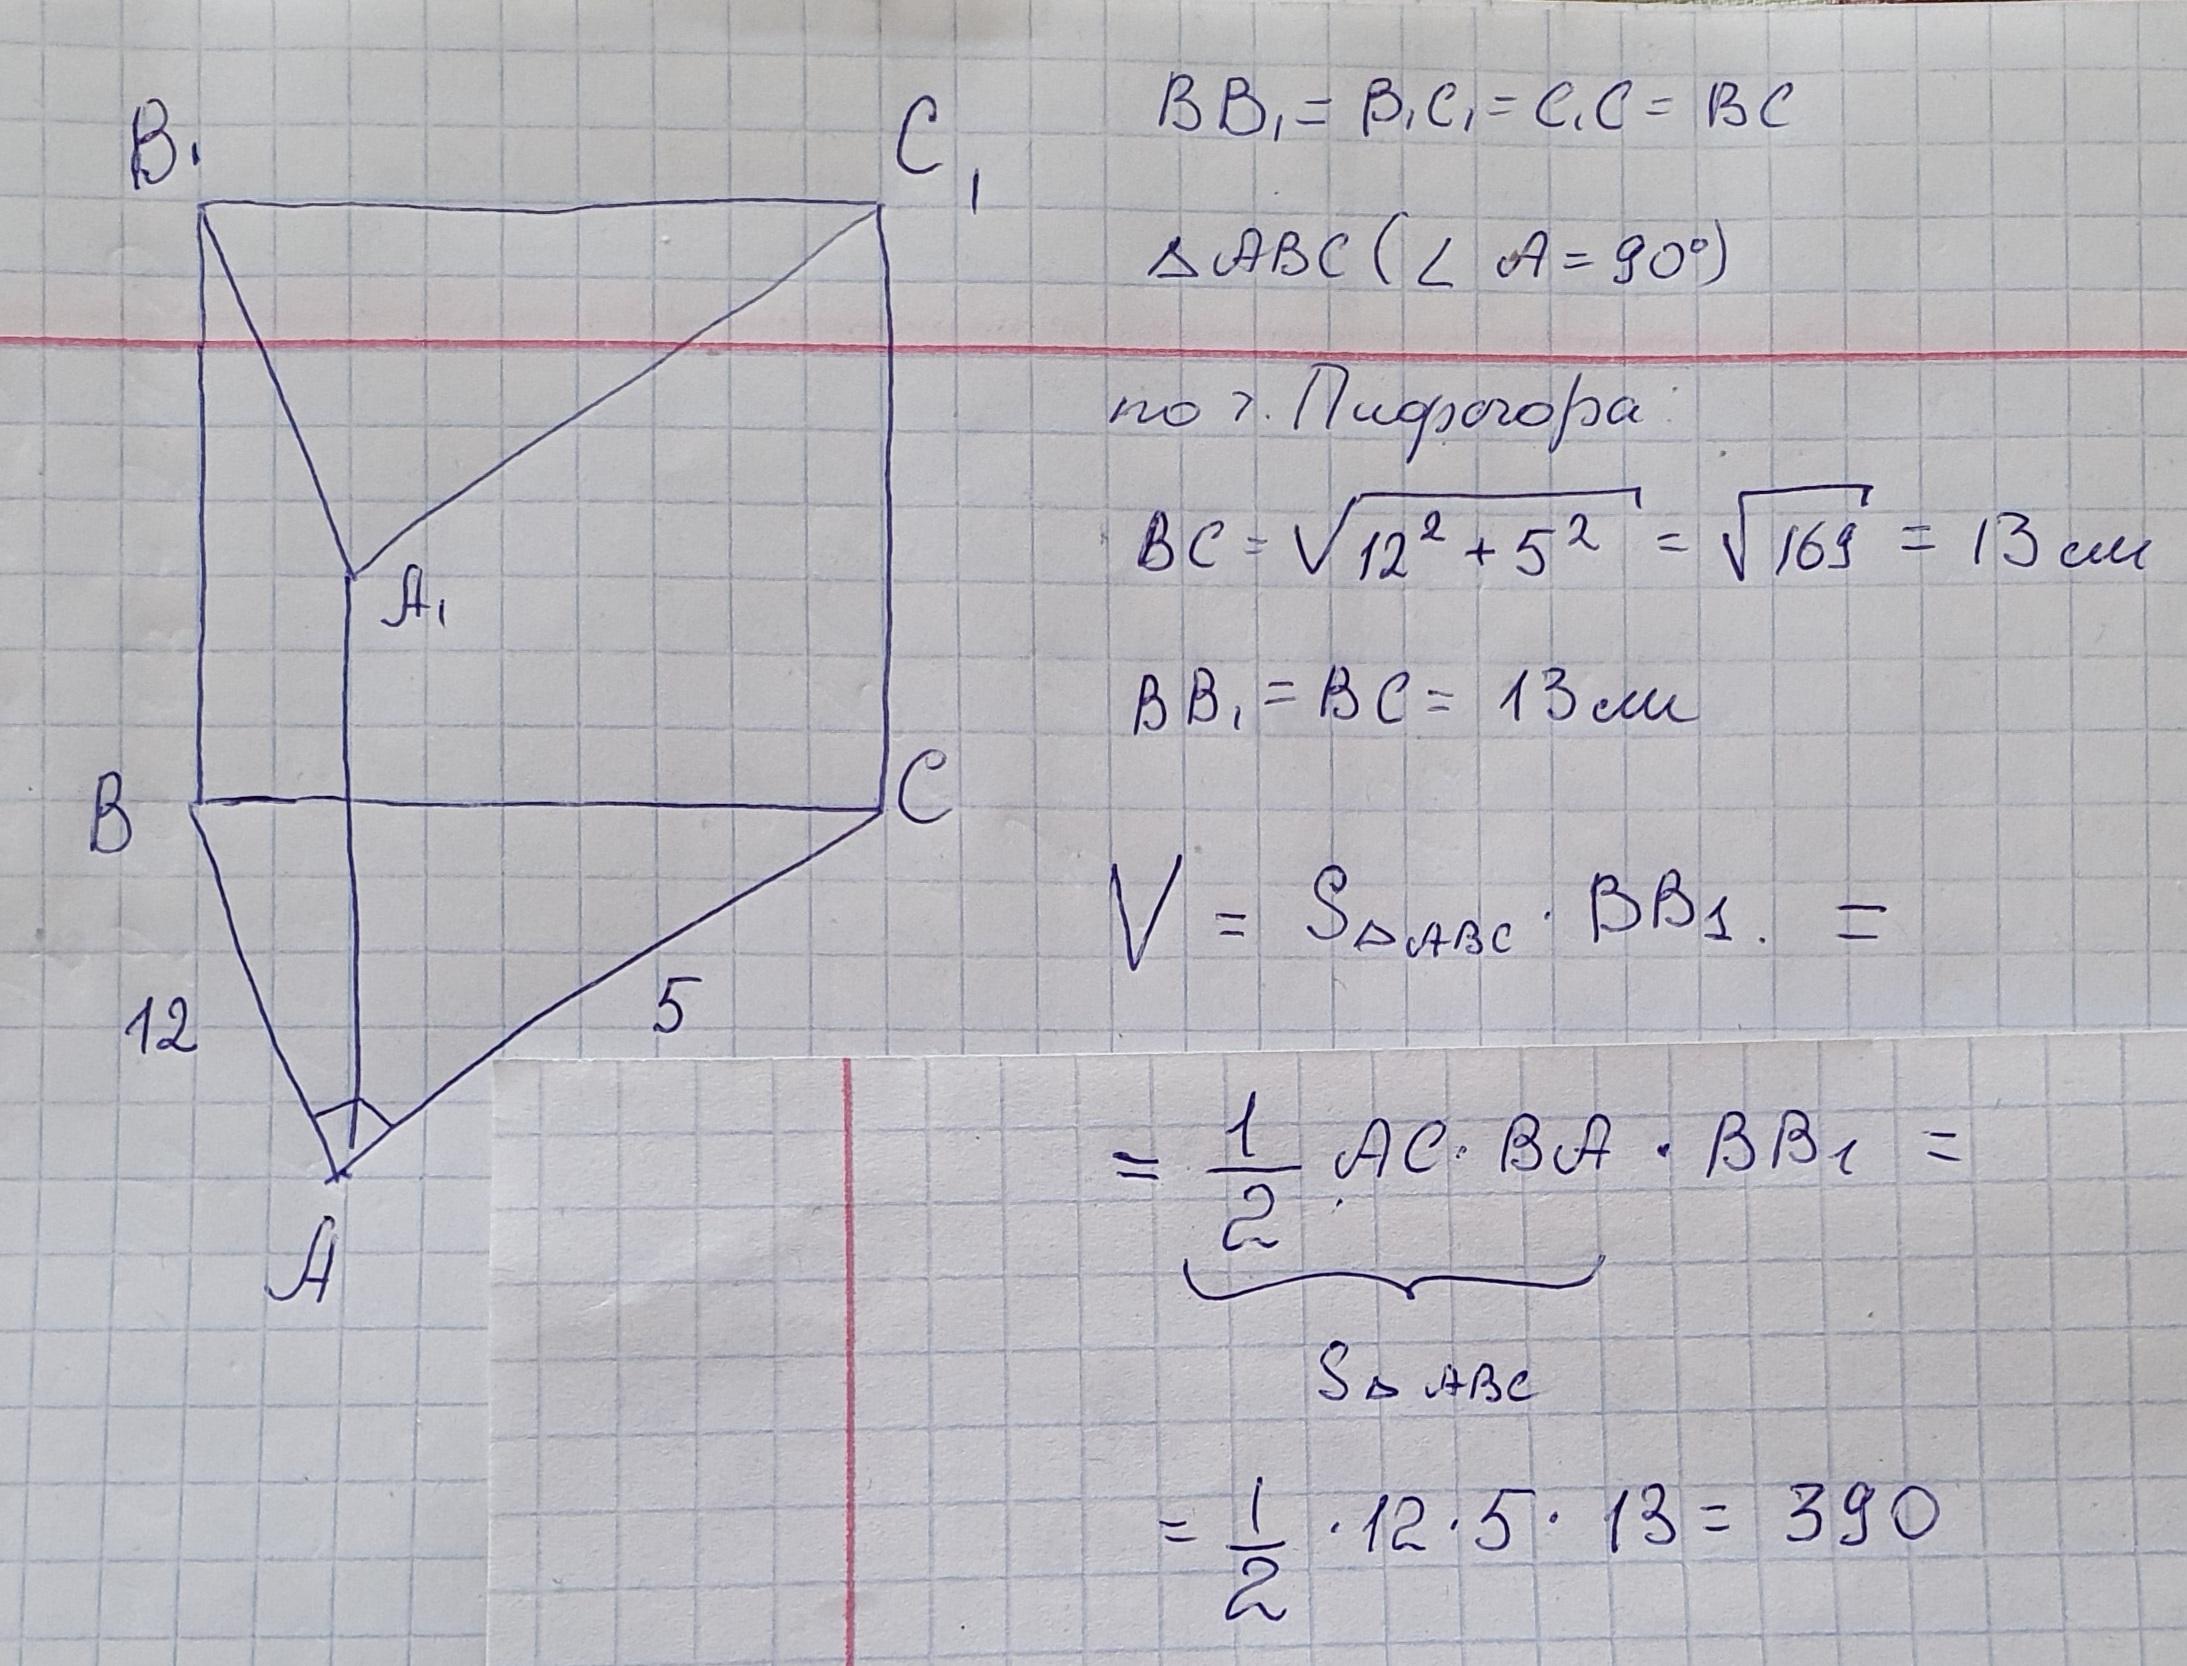 B₁
C₁
A₁
B
C
12
5
A
BB₁ = B₁C₁ = C₁C = BC
△ABC (∠ A = 90°)
по т. Пифагора:
BC = √(12² + 5²) = √169 = 13 см
BB₁ = BC = 13 см
V = S△ABC · BB₁ =
= 1/2 AC · BA · BB₁ =
S△ABC
= 1/2 · 12 · 5 · 13 = 390